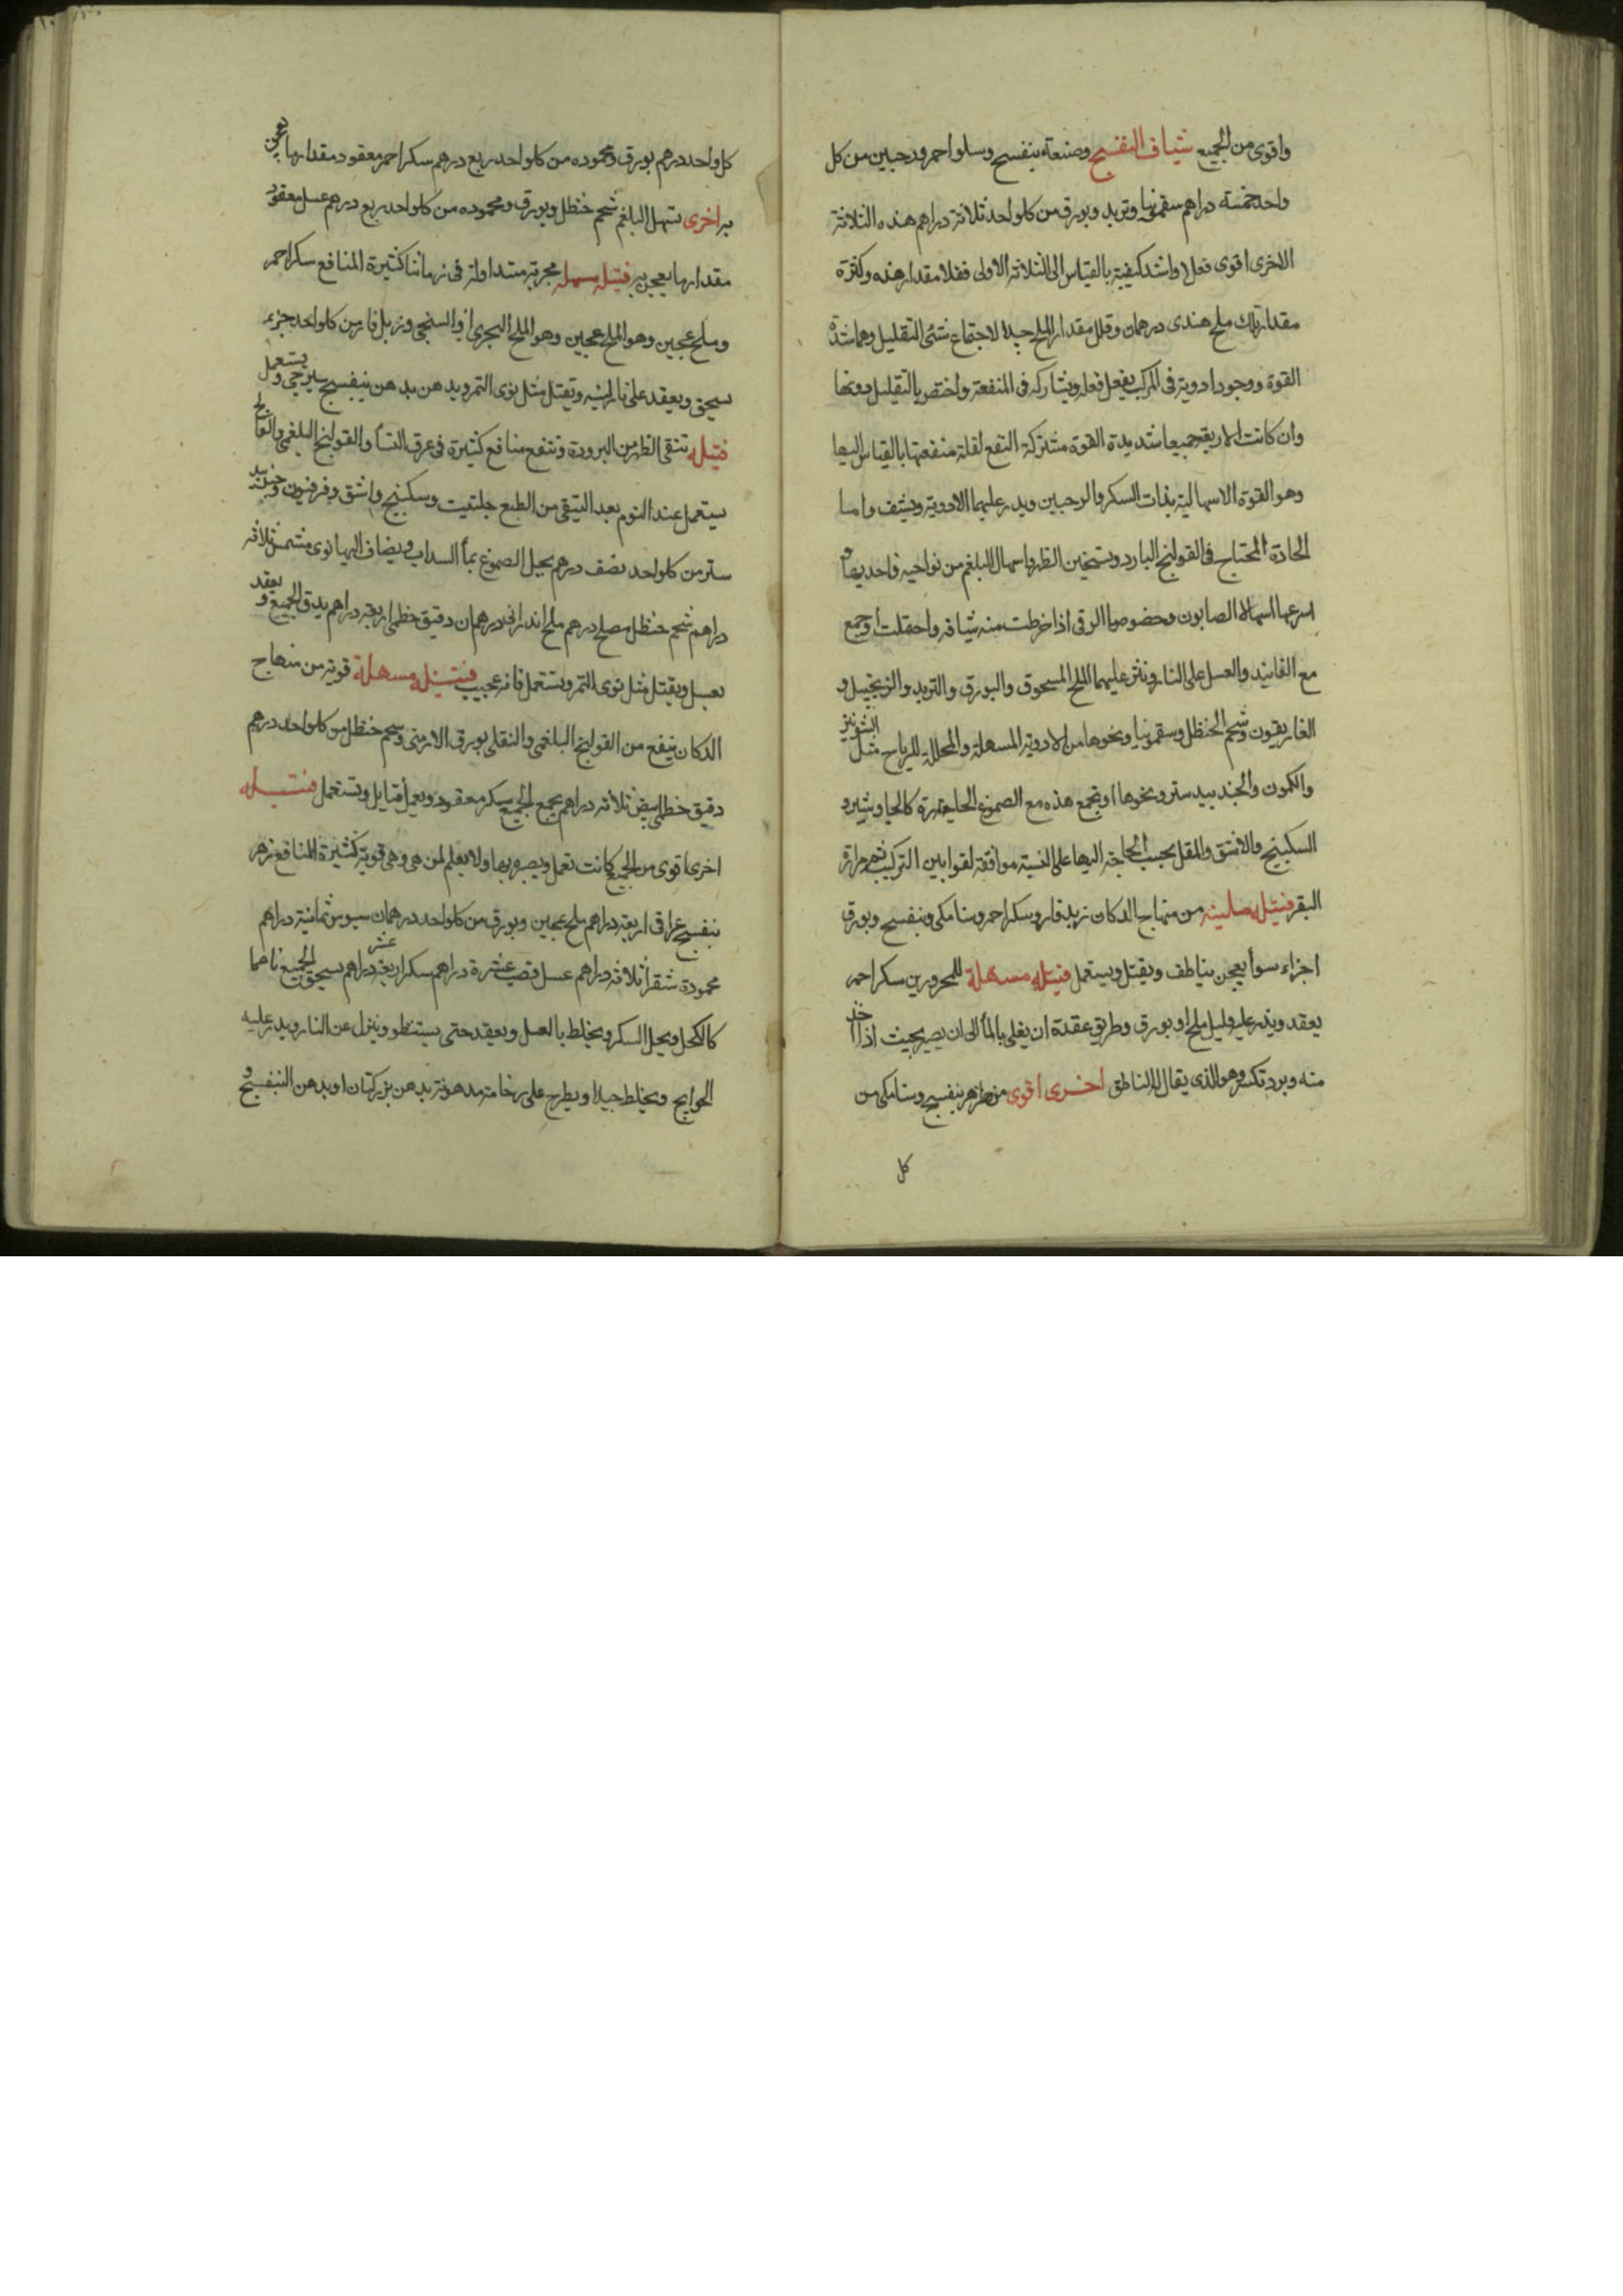 واقوى من الجميع شياف البنفسج وصنعته بنفسج وسلو احمر ودحبين من كل
واحد خمسة دراهم سقمونيا وتربد وبورق من كل واحد ثلاثة دراهم هذه الثلاثة
الاخرى اقوى فعلا واشد كيفية بالقياس الى الثلاثة الاولى فقلا مقدار هذه وكثرة
مقدار تلك ملح هندى درهمان وقلل مقدار الملح جدا لاجتماع شئ التقليل وهما شدة
القوة ووجود ادوية فى المركب يفعل فعله ويشاركه فى المنفعة واختص بالتقليل دونها
وان كانت الاربعة جميعا شديدة القوة مشتركة النفع لقلة منفعتها بالقياس اليها
وهو القوة الاسهالية يذاب السكر والرحبين ويدر عليهما الادوية ويشيف واما
الحادة المحتاج فى القولنج البارد وتسخين الظهر واسهال البلغم من نواحيه فاحديها
اسرعها اسهالا الصابون وخصوصا الرقى اذا خرطت منه شيافه واحقلت او جمع
مع الفانيد والعسل على النار ونثر عليهما الملح المسحوق والبورق والتربد والزنجبيل و
الغاريقون وشحم الحنظل وسقمونيا ونحوها من الادوية المسهلة والمحللة للرياح مثل الشونيز
والكمون والجندبيدستر ونحوها او تجمع هذه مع الصموغ الحارة كالجاوشير و
السكبينج والاشق والمقل بحسب الحاجة اليها على النسبة موافقة لقوانين التركيب مرارة
البقر فتيلة ملينة من منهاج الدكان زبد فار وسكر احمر وسنا مكى وبنفسج وبورق
اجزاء سوأ يعجن بناطف ويفتل ويستعمل فتيلة مسهلة للمحرورين سكر احمر
يعقد ويذر عليه قليل ملح او بورق وطريق عقدة ان يغلى بالمأ الى ان يصير بحيث اذا اخذ
منه وبرد تكسر وهو الذى يقال له الناطق اخرى اقوى من زهر بنفسج وسنا مكى من
كل
كل واحد درهم بورق ومحموده من كل واحد ربع درهم سكر احمر معقود مقدار ما يعجن
به اخرى تسهل البلغم شحم حنظل وبورق ومحموده من كل واحد ربع درهم عسل معقود
مقدار ما يعجن به فتيلة سهلة مجربة متداولة فى زماننا كثيرة المنافع سكر احمر
وملح عجين وهو الملح عجين وهو الملح البحرى او السبخى وزبل فار من كل واحد جزء
يسحق ويعقد على نار لينه ويفتل مثل نوى التمر ويدهن بدهن بنفسج سيرجى ويستعمل
فتيلة تنقى الظهر من البرودة وتنفع منافع كثيرة فى عرق النسأ والقولنج البلغمى والفالج
يستعمل عند النوم بعد التنقى من الطبع حلتيت وسكبنج واشق وفرفيون وجندبيد
ستر من كل واحد نصف درهم يحل الصموغ بمأ السداب ويضاف اليها نوى مشمش ثلاثه
دراهم شحم حنظل مصلح درهم ملح اندرانى درهمان دقيق خطمى اربعة دراهم يدق الجميع ويعقد
بعسل ويفتل مثل نوى التمر ويستعمل فانه عجيب فتيلة مسهلة قوية من منهاج
الدكان ينفع من القولنج البلغمى والثقلى بورق الارمنى وشحم حنظل من كل واحد درهم
دقيق خطمى ابيض ثلاثه دراهم يجمع الجميع بسكر معقود ويعمل فتايل وتستعمل فتيلة
اخرى اقوى من الجميع كانت تعمل ويصير بها ولا يعلم لمن هى وهى قوية كثيرة المنافع زهر
بنفسج عراقى اربعة دراهم ملح عجين وبورق من كل واحد درهمان سبوس ثمانية دراهم
محمودة شقرأ ثلاثه دراهم عسل قصب عشرة دراهم سكر اربعة عشر دراهم يسحق الجميع ناعما
كالكحل ويحل السكر ويخلط بالعسل ويعقد حتى يستنطو وينزل عن النار ويدر عليه
الحوايج ويخلط جيدا ويطرح على رخامة مدهونة بدهن بزر كتان او بدهن البنفسج و